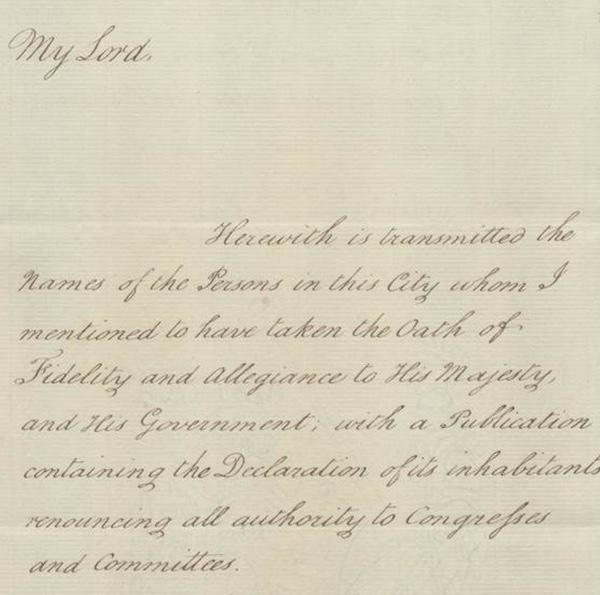 My Lord.
Herewith is transmitted the
Names of the Persons in this City whom I
mentioned to have taken the Oath of
Fidelity and Allegiance to His Majesty,
and His Government; with a Publication
containing the Declaration of its inhabitants
renouncing all authority to Congreſses
and Committees.